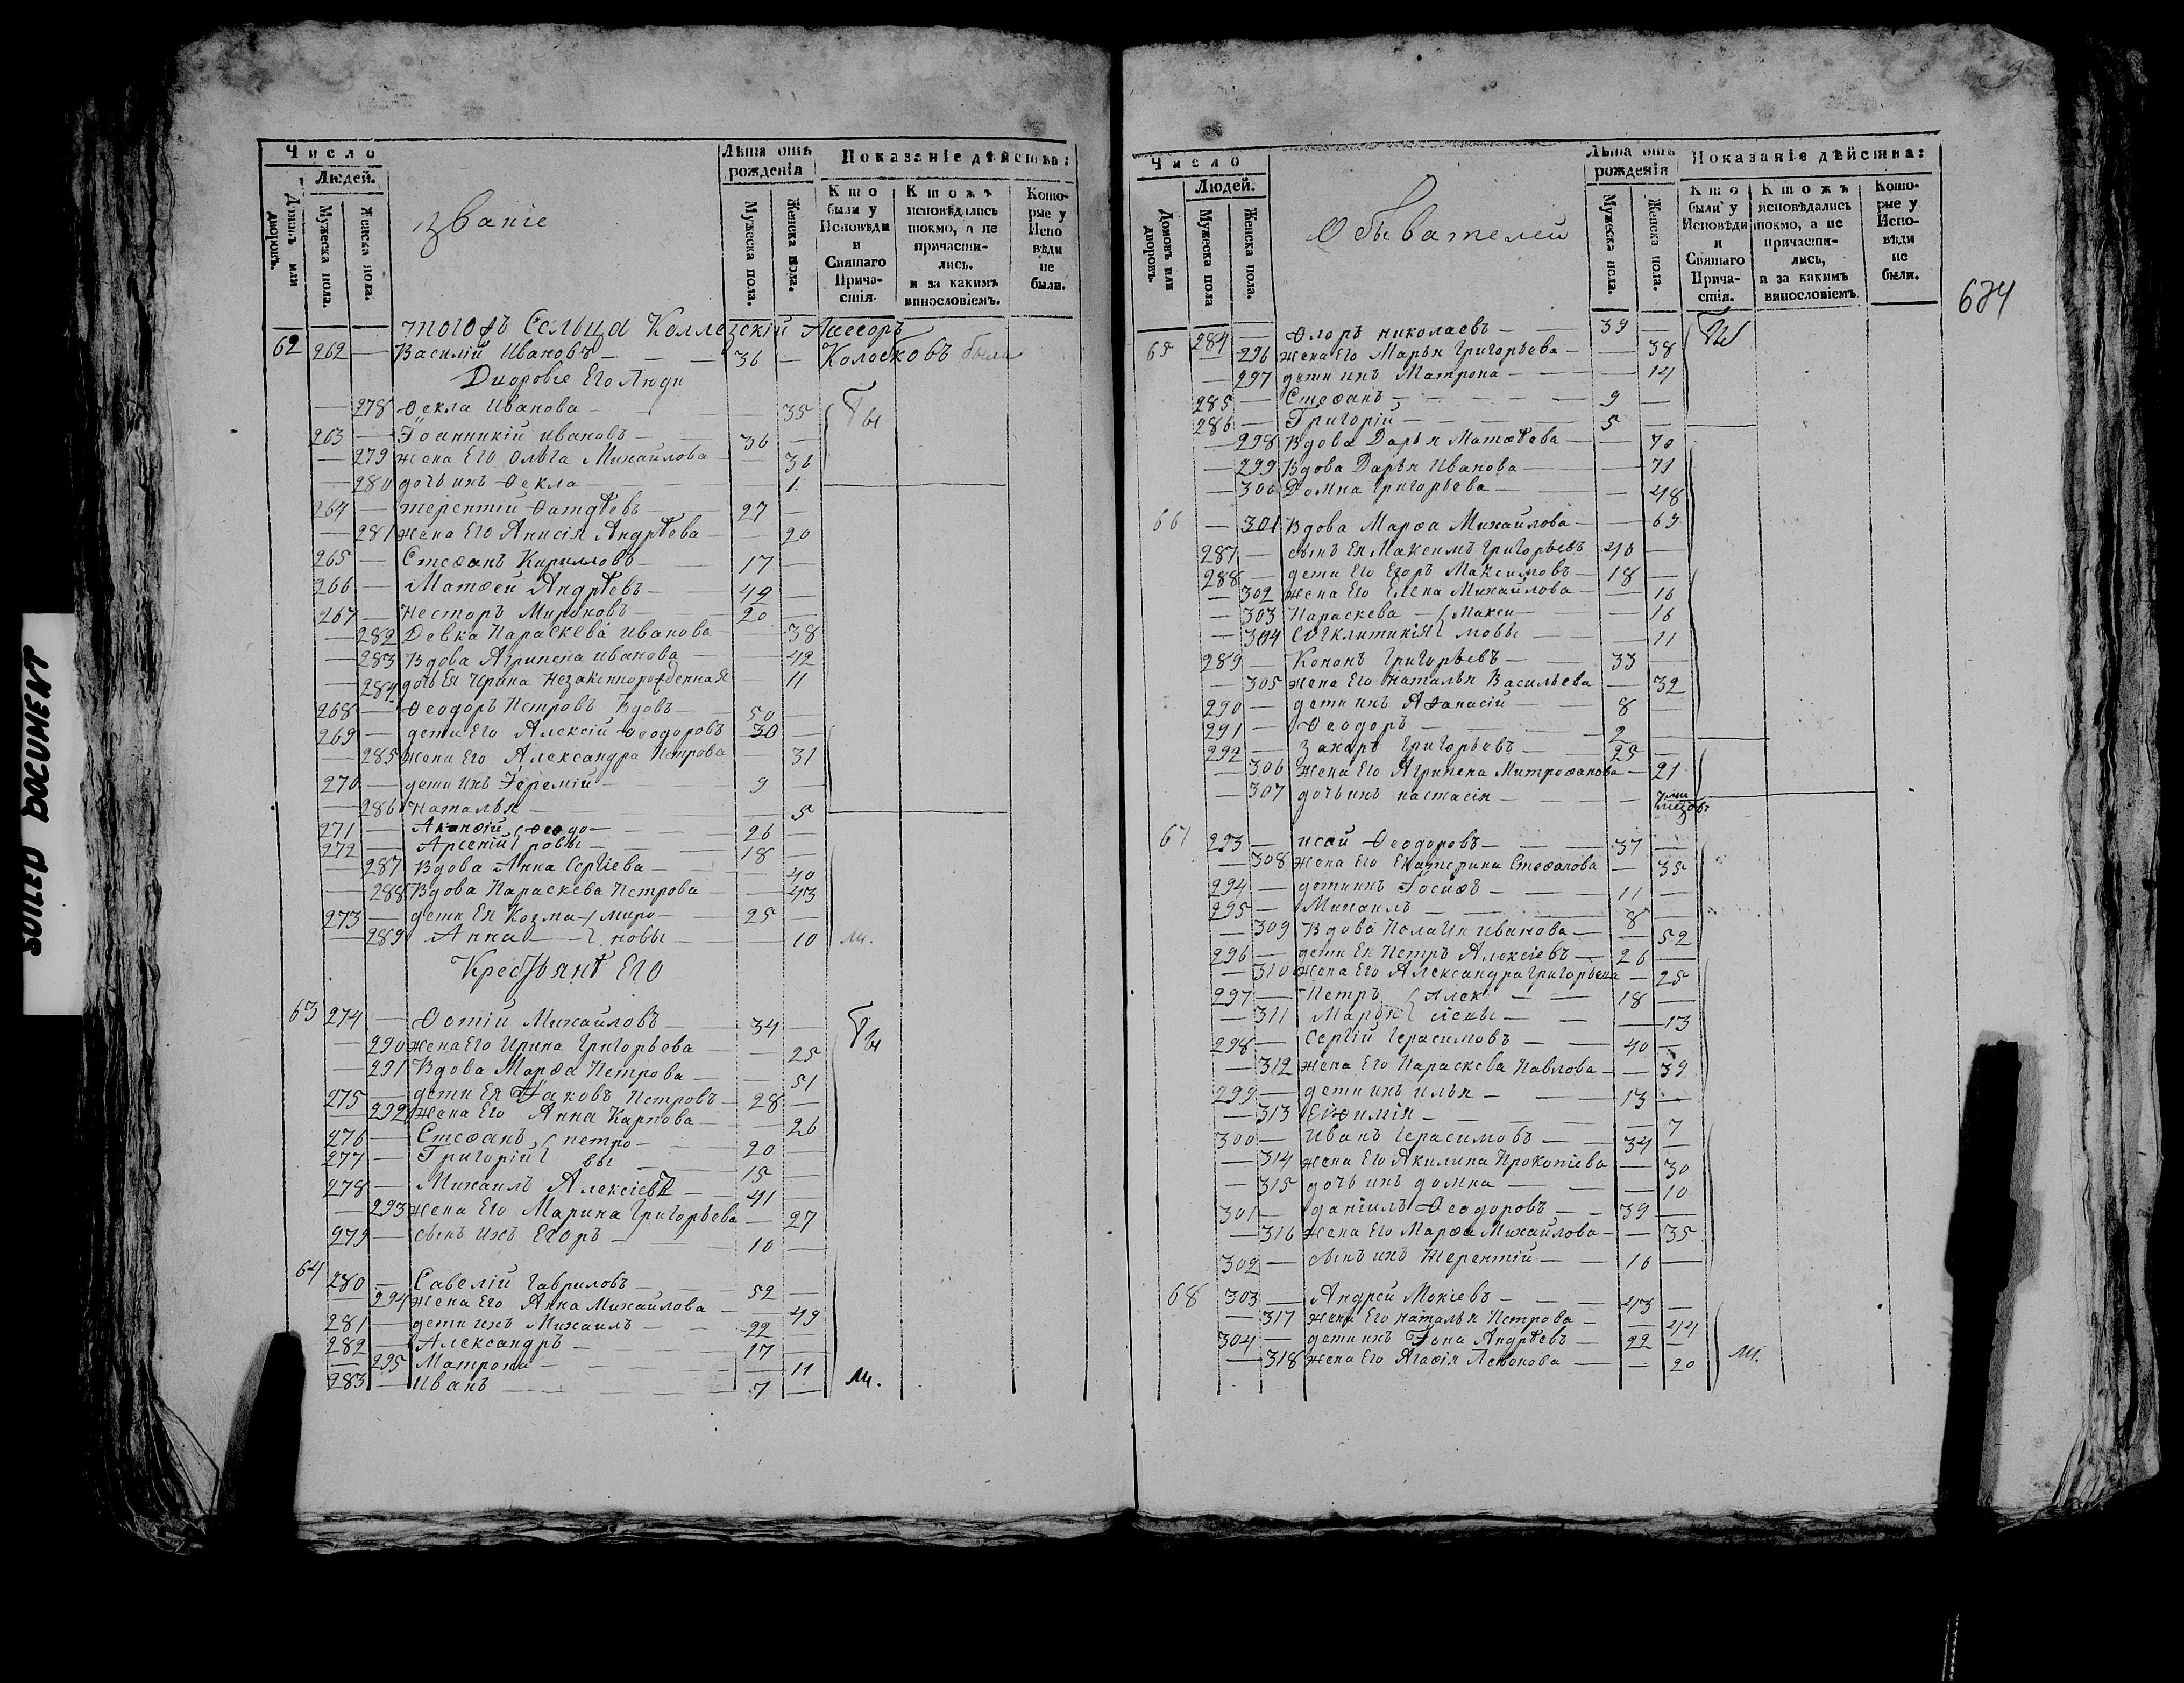 SOILED DOCUMENT
Число
Людей.
Домовъ или дворовъ.
Мужеска пола.
Женска пола.
званіе
Лѣта отъ рожденія
Мужеска пола.
Женска пола.
Показаніе дѣйства:
Кто были у Исповѣди и Святаго Прича-стія.
Ктожъ исповѣдались токмо, а не причасти-лись. и за какимъ винословіемъ.
Кото-рые у Испо вѣди не были.
тогожъ Сельца Коллезскій Ассесоръ
62 262 — Василій Ивановъ — 36 — Колосковъ были
Дворовые Его Люди
— 278 Ѳекла Иванова — 35
263 — Іоанникій ивановъ — 36 —
— 279 жена Его Ольга Михайлова — 36
— 280 дочь ихъ Ѳекла — 1.
264 — терентій Ѳатѣевъ — 27 —
— 281 жена Его Анисія Андрѣева — 20
265 — Стеѳанъ Кирилловъ — 17 —
266 — Матѳей Андрѣевъ — 49 —
267 — Несторъ Мироновъ — 20
— 282 Девка Параскева иванова — 38
— 283 Вдова Агрипена иванова — 42
— 284 дочь Ея Ирина Незаконнорожденная — 11
268 — Ѳеодоръ Петровъ Вдовъ — 50 —
269 — дети Его Алексій Ѳеодоровъ 30 —
— 285 жена Его Александра Петрова 31
270 — дети ихъ Іеремій — 9 —
— 286 Наталья — 5
271 — Акинѳій { Ѳеодо — 26 —
272 — Арсеній { ровы — 18 —
— 287 Вдова Анна Сергіева — 40
— 288 Вдова Параскева Петрова — 43
273 — дети Ея Козма { миро — 25 —
— 289 Анна — { новы — 10 м.
Крестьянѣ Его
63 274 — Ѳотій Михайловъ — 34 —
— 290 жена Его Ирина Григорьева — 25
— 291 Вдова Марѳа Петрова — 51
275 — дети Ея Іаковъ Петровъ — 28 —
— 292 жена Его Анна Карпова — 26
276 — Стеѳанъ { петро — 20 —
277 — Григорій { вы — 15 —
278 — Михаилъ Алексіевъ — 41
— 293 жена Его Марина Григорьева — 27
279 — сынъ ихъ Егоръ — 10 —
64 280 — Савелій Гавриловъ — 52 —
— 294 жена Его Анна Михайлова — 49
281 — дети ихъ Михаилъ — 22 —
282 — Александръ — 17 —
— 295 Матрона — 11
283 — Иванъ — 7 — м.
Число
Людей.
Домовъ или дворовъ.
Мужеска пола
Женска пола.
Обывателей
Лѣта отъ рожденія
Мужеска пола.
Женска пола.
Показаніе дѣйства:
Кто были у Исповѣди и Святаго Прича-стія.
Ктожъ исповѣдались токмо, а не причасти-лись, и за какимъ винословіемъ.
Кото-рые у Испо-вѣди не были.
674
65 284 — Флоръ николаевъ — 39 —
— 296 жена Его Марья Григорьева — 38
— 297 дети ихъ Матрона — 14
285 — Стеѳанъ — 9 —
286 — Григорій — 5 —
— 298 Вдова Дарья Матѳѣева — 70
— 299 Вдова Дарья Иванова — 71
— 300 Домна Григорьева — 48
66 — 301 Вдова Марѳа Михайлова — 69
287 — сынъ Ея Максимъ Григорьевъ 46 —
288 — дети Его Егоръ Максимовъ — 18 —
— 302 жена Его Елена Михайлова — 16
— 303 Параскева — { Макси — 16
— 304 Сѵгклитикія { мовы — 11
289 — Кононъ Григорьевъ — 33 —
— 305 жена Его Наталья Васильева — 32
290 — дети ихъ Аѳанасій — 8 —
291 — Ѳеодоръ — 2 —
292 — Захаръ Григорьевъ — 29 —
— 306 жена Его Агрипена Митрофанова — 21
— 307 дочь ихъ настасія —
67 293 — исай Ѳеодоровъ — 37 —
— 308 жена Его Екатерина Стеѳанова — 35
294 — дети ихъ Іосифъ — 11 —
295 — Михаилъ — 8 —
— 309 Вдова Пелагія иванова — 52
296 — дети Ея Петръ Алексіевъ — 26 —
— 310 жена Его Александра Григорьева — 25
297 — Петръ { Алек — 18 —
— 311 Марья { сіевы — 13
298 — Сергій Герасимовъ — 40 —
— 312 жена Его Параскева Павлова — 39
299 — дети ихъ илья — 13 —
— 313 Евѳимія — 7
300 — Иванъ Герасимовъ — 34 —
— 314 жена Его Акилина Прокопіева — 30
— 315 дочь ихъ домна — 10
301 — даніилъ Ѳеодоровъ — 39 —
— 316 жена Его Марѳа Михайлова — 35
302 — сынъ ихъ Терентій — 16 —
68 303 — Андрей Мокіевъ — 43 —
— 317 жена Его наталья Петрова — 44
304 — дети ихъ Іона Андрѣевъ — 22 —
— 318 жена Его Агаѳія Леонова — 20 м.